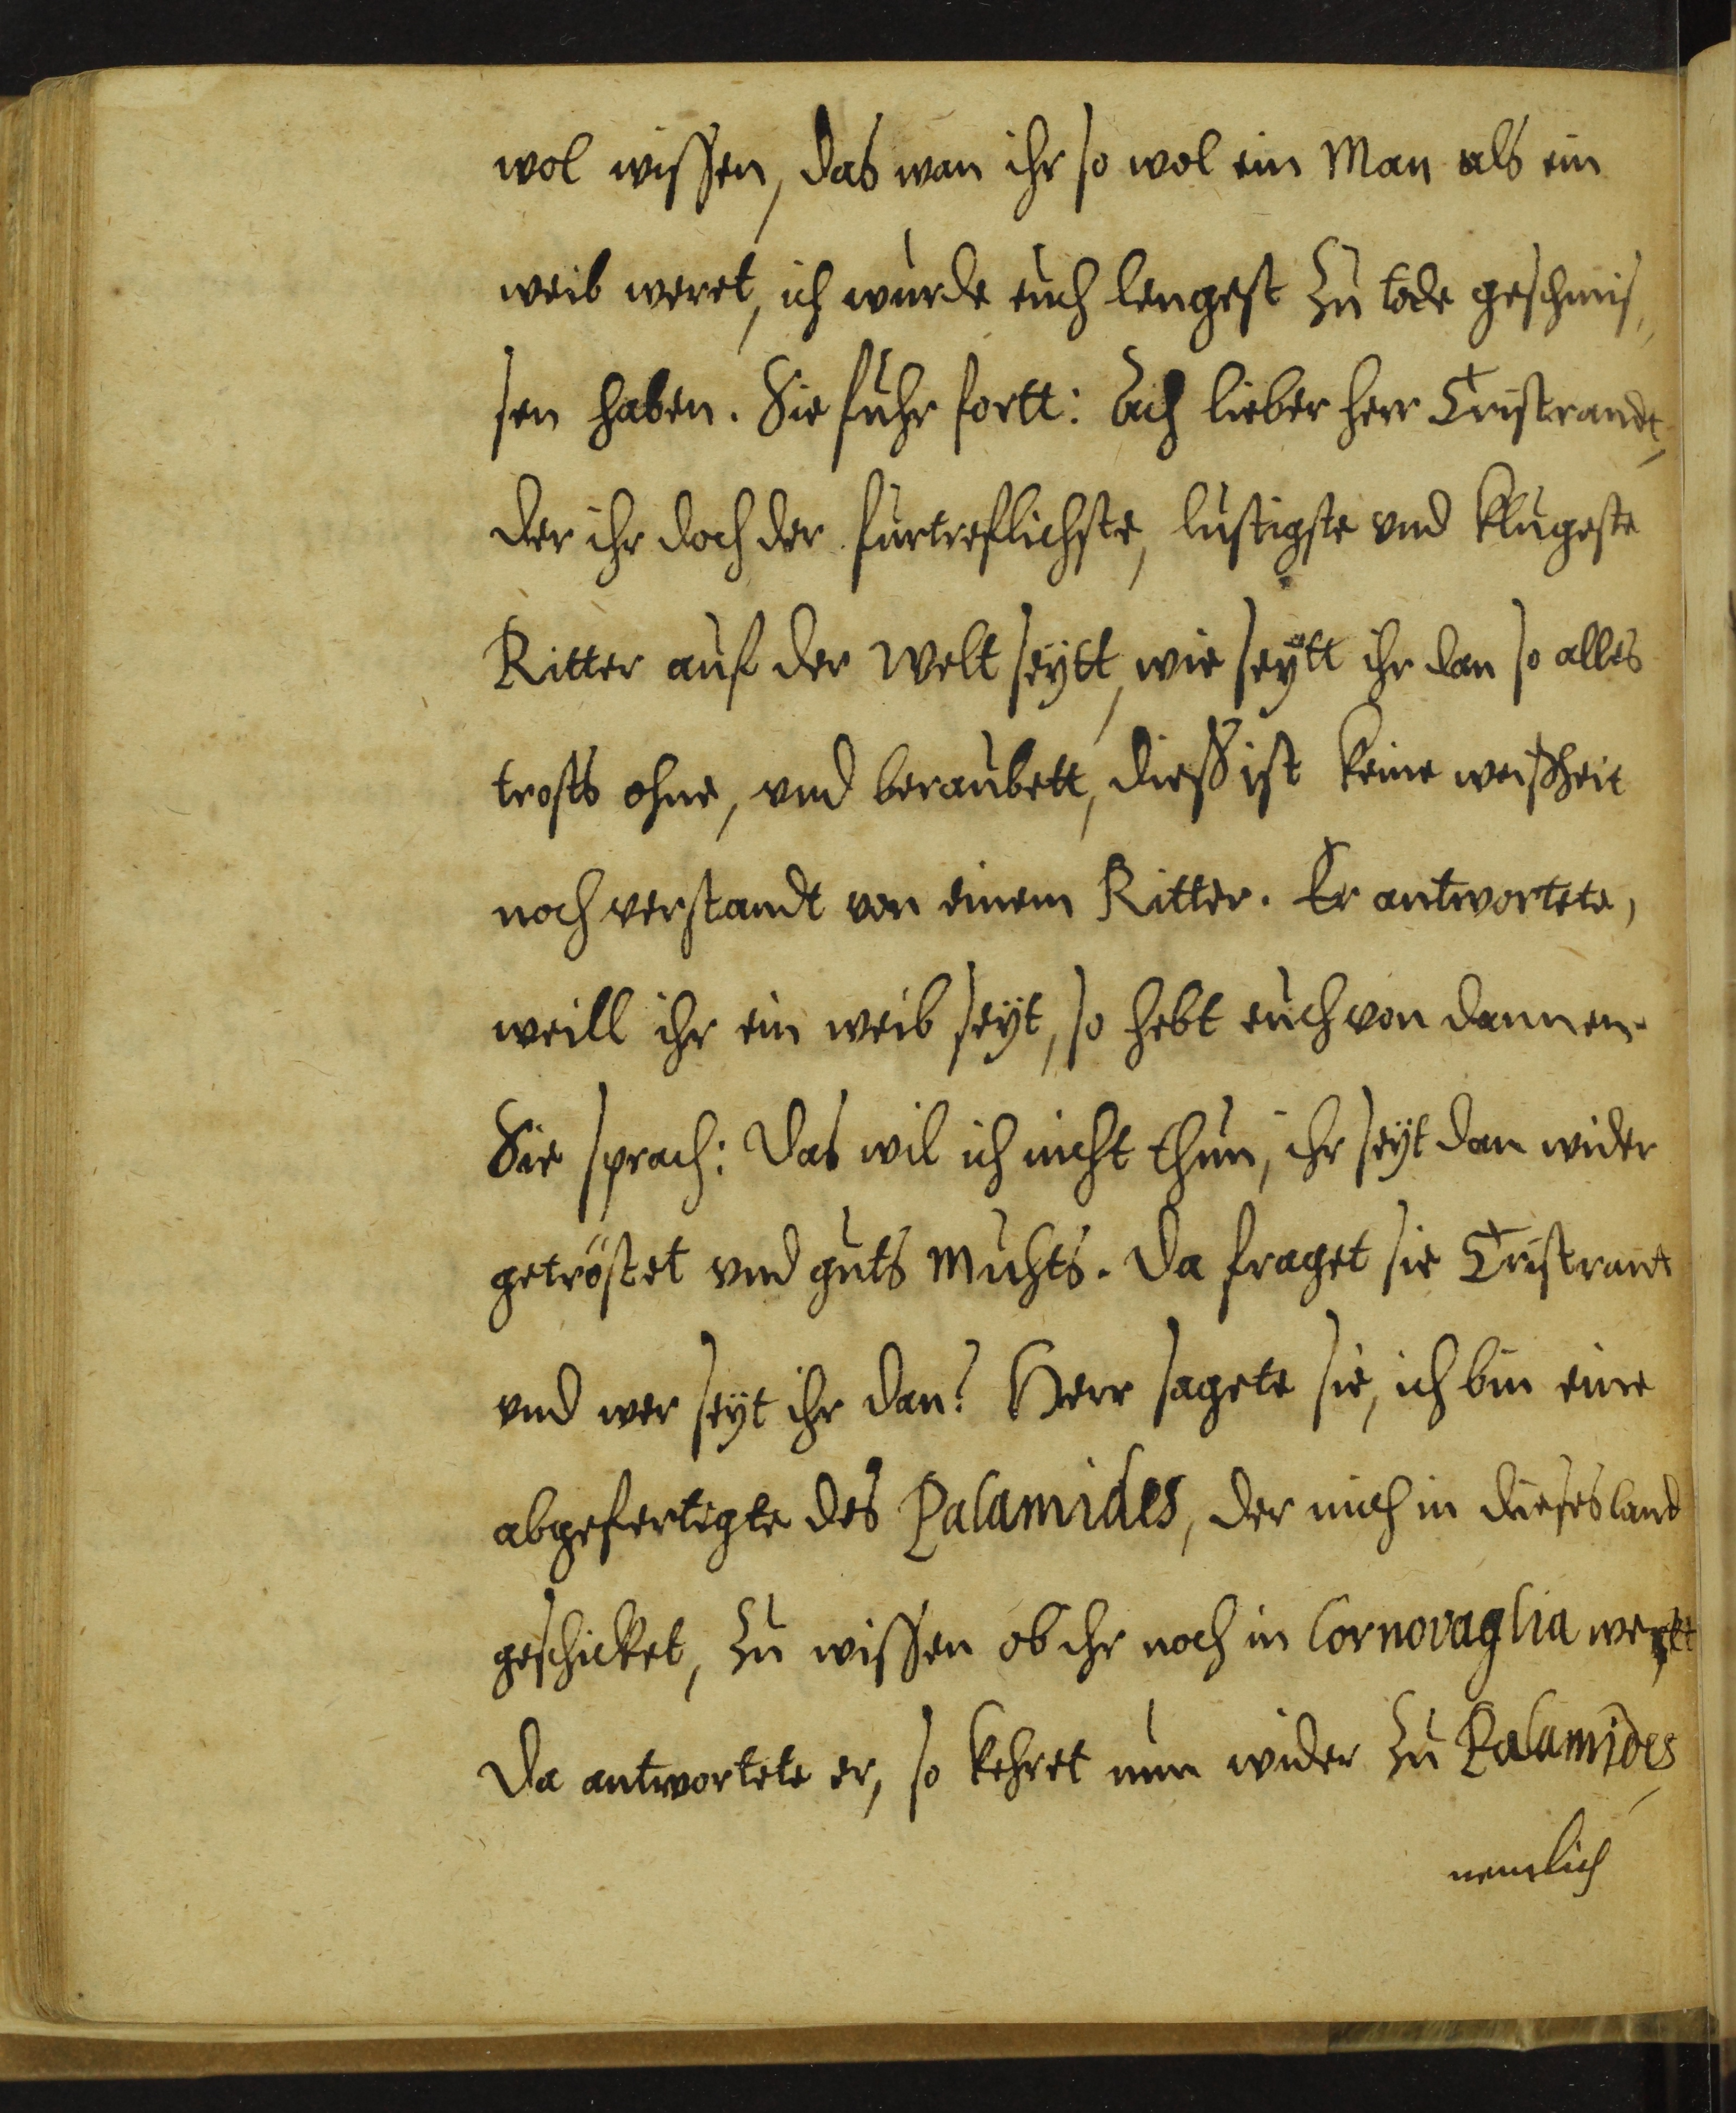 wol wissen, das wan ihr so wol ein Man als ein
weib weret, ich wurde euch lengest zu tode geschmis„
sen haben. Sie fuhr fortt: Ach lieber herr Tristrandt,
der ihr doch der furtreflichste, lustigste vnd klugeste
Ritter auf der Welt seytt, wie seytt ihr dan so alles
trosts ohne, vnd beraubett, dieß ist keine weißheit
noch verstandt von einem Ritter. Er antwortete,
weill ihr ein weib seyt, so hebt euch von dannen.
Sie sprach: Das wil ich nicht thun, ihr seyt dan wider
getröstet vnd guts Muhts. Da fraget sie Tristrant
vnd wer seyt ihr dan? Herr sagete sie, ich bin eine
abgefertigte des Palamides, der mich in dieses land
geschicket, zu wissen ob ihr noch in Cornovaglia weret
Da antwortete er, so kehret nun wider zu Palamides,
nemlich